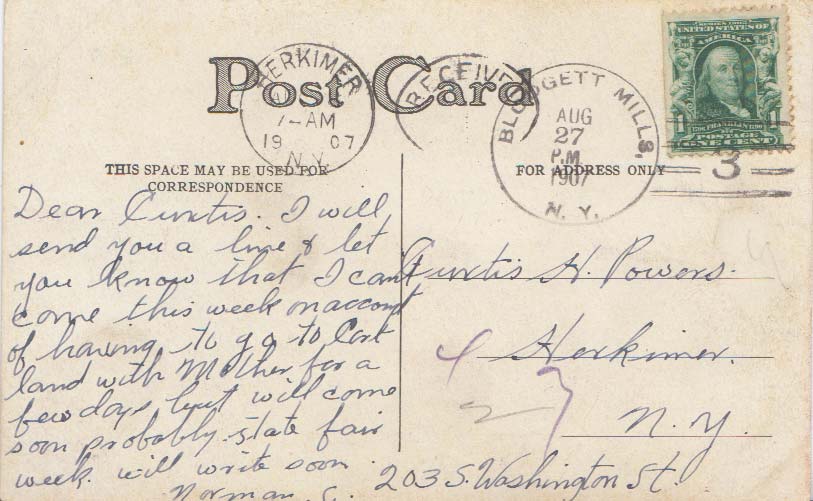 Post Card
HERKIMER
7-AM
19 07
N.Y.
RECEIVED
BLODGETT MILLS,
AUG
27
P.M.
1907
N. Y.
3
SERIES 1902
UNITED STATES OF
AMERICA
1 1
FRANKLIN
POSTAGE
ONE CENT
THIS SPACE MAY BE USED FOR
CORRESPONDENCE
FOR ADDRESS ONLY
Dear Curtis. I will
send you a line & let
you know that I can't
come this week on account
of having to go to Cort
land with Mother for a
few days but will come
soon probably state fair
week. will write soon
Norman C.
Curtis H. Powers.
Herkimer.
N. Y.
203 S. Washington St.